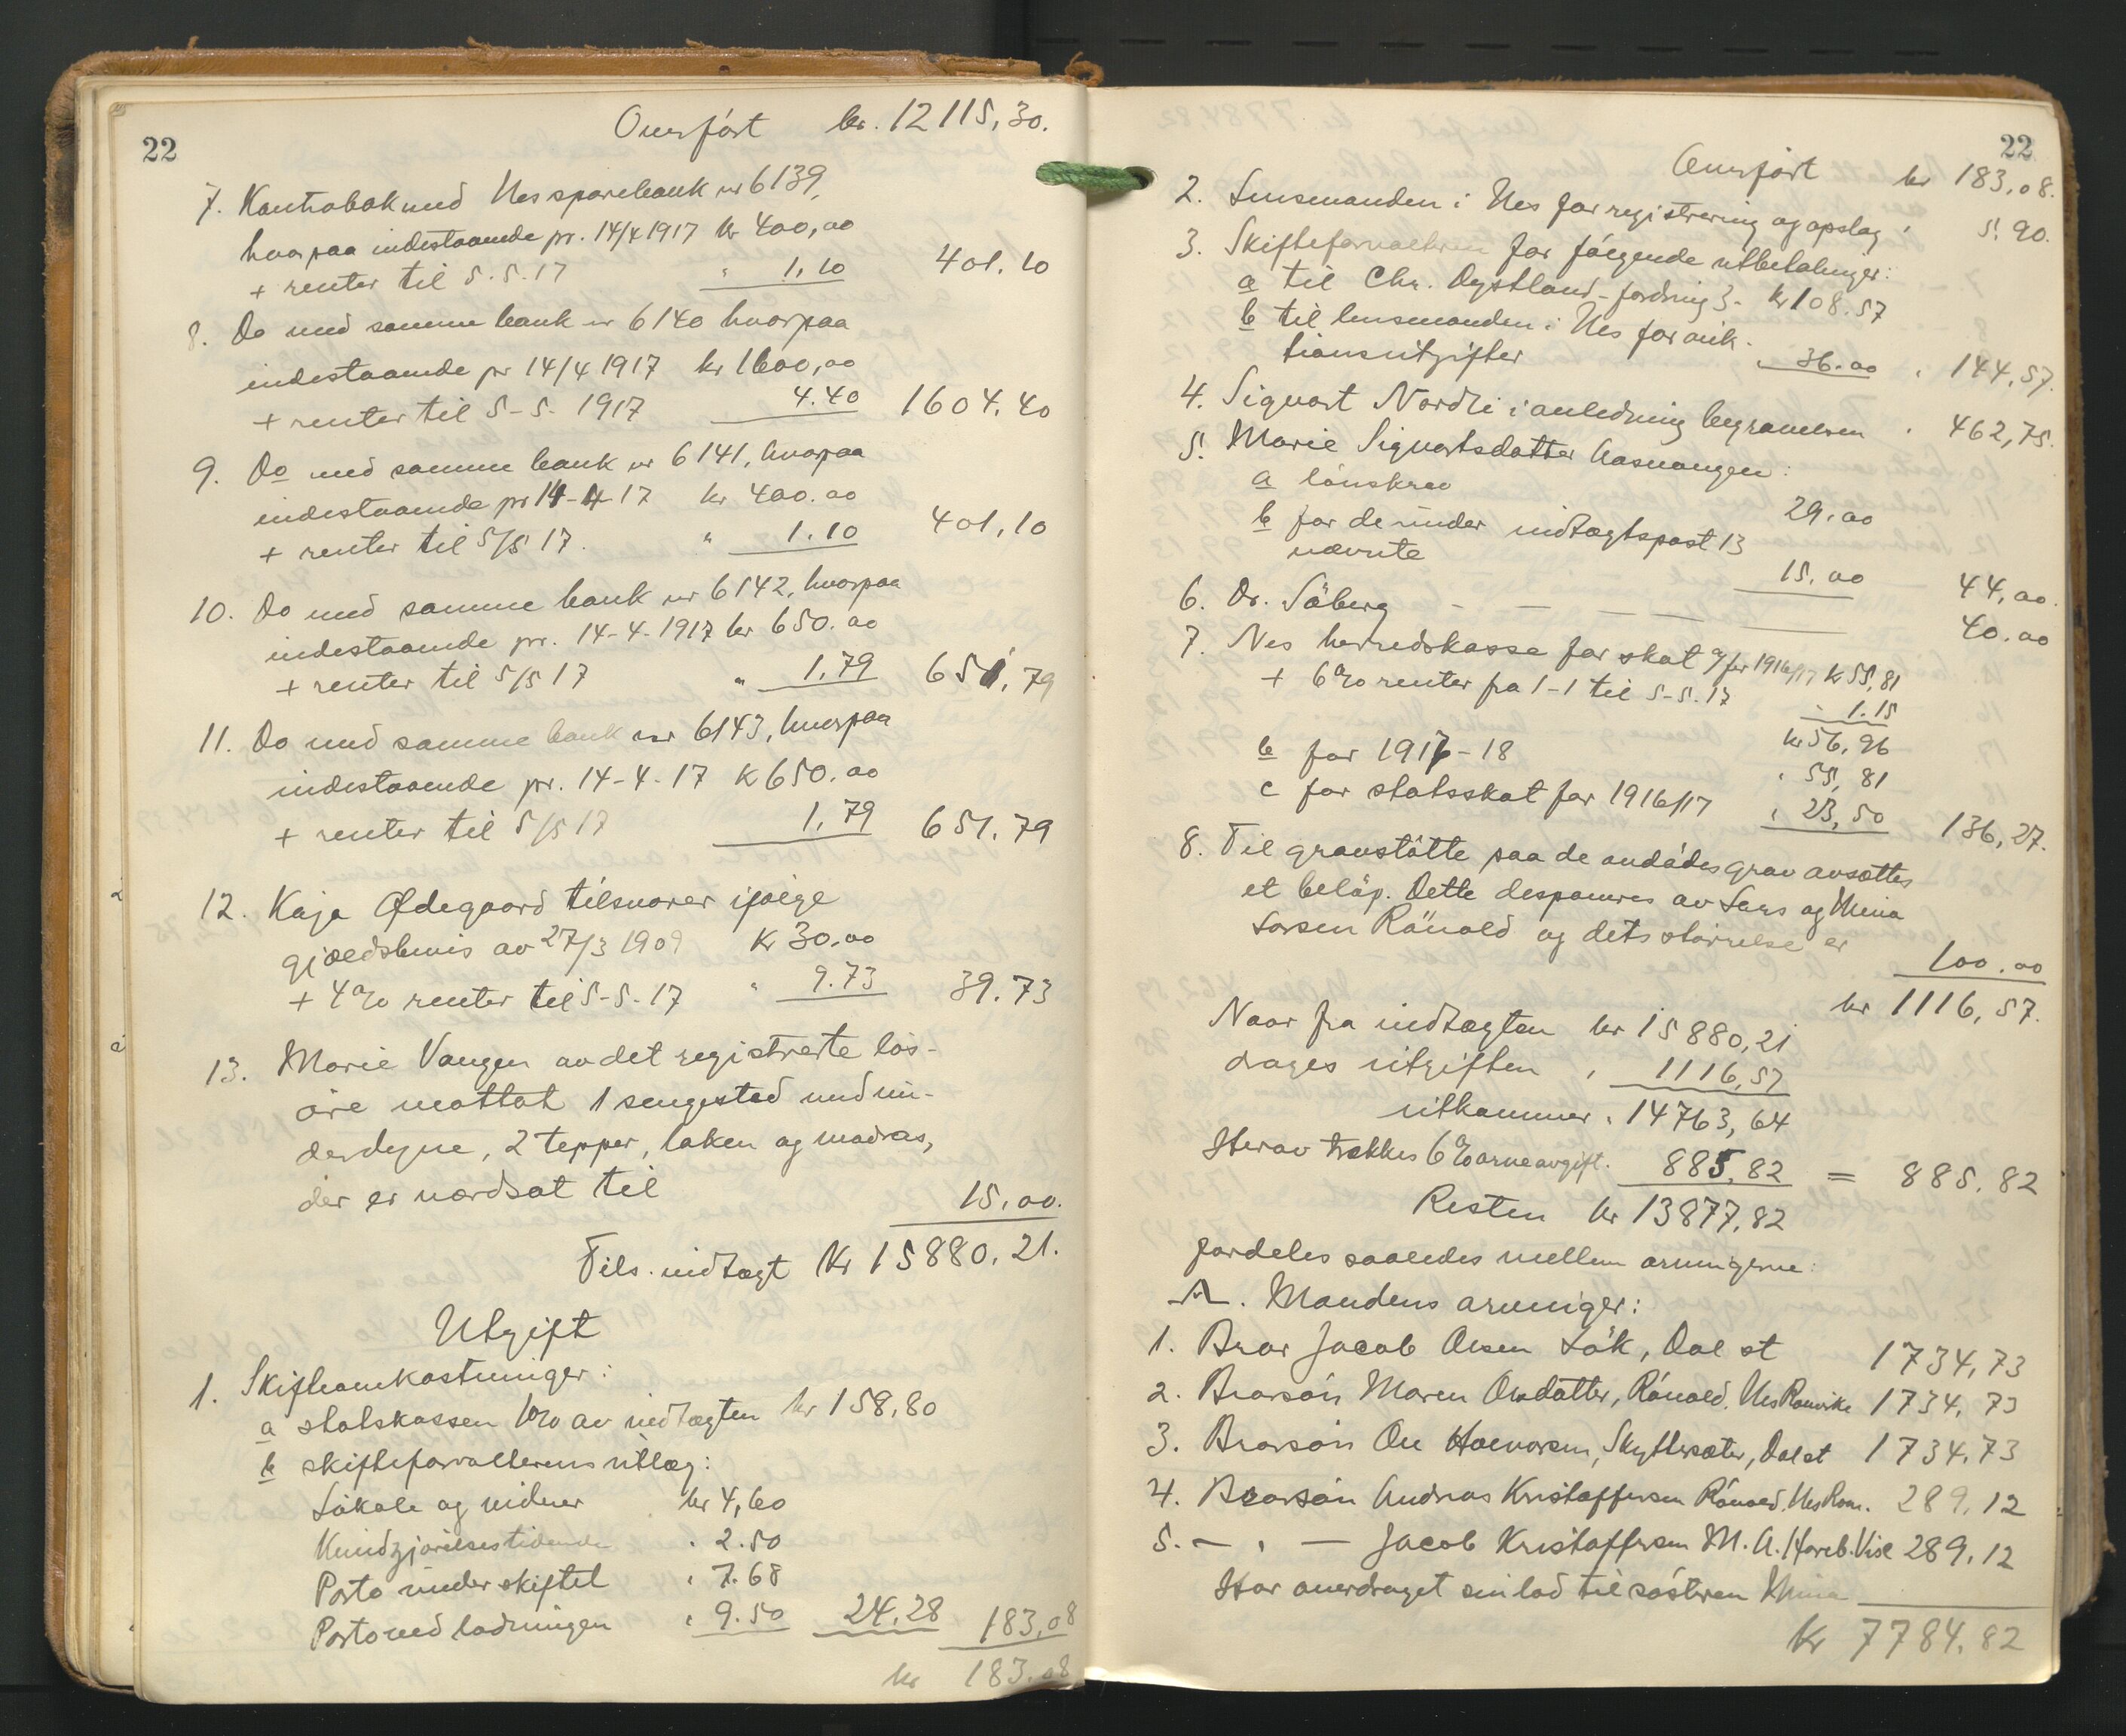 22
Overført kr. 12115,30.
7. Kontrabok med Nes sparebank nr 6139,
hvorpaa indestaaende pr. 14/4 1917 kr 400,00
+ renter til 5.5.17 " 1.10 401.10
8. Do med samme bank nr 6140 hvorpaa
indestaaende pr 14/4 1917 kr 1600,00
+ renter til 5-5-1917 4.40 1604.40
9. Do med samme bank nr 6141, hvorpaa
indestaaende pr 14-4-17 kr 400.00
+ renter til 5/5 17. " 1.10 401,10
10. Do med samme bank nr 6142, hvorpaa
indestaaende pr. 14-4-1917 kr 650.00
+ renter til 5/5 17 " 1.79 651,79
11. Do med samme bank nr 6143, hvorpaa
indestaaende pr. 14-4-17 k 650.00
+ renter til 5/5 17 1,79 651.79
12. Kaja Ødegaard tilsvarer ifølge
gjældsbevis av 27/3 1909 kr 30.00
+ 4% renter til 5-5-17 " 9.73 39.73
13. Marie Vangen av det registrerte løs-
øre mottat 1 sengested med un-
derdyne, 2 tepper, laken og madras,
der er værdsat til 15,00.
Tils. indtægt Kr 15880.21.
Utgift
1. Skifteomkostninger:
a statskassen 1% av indtægten kr 158,80
b skifteforvalterens utlæg:
Lokale og vidner kr 4,60
Kundgjørelsestidende " 2.50
Porto under skiftet " 7.68
Porto ved lodningen " 9.50 24.28 183,08
kr 183.08
22
Overført kr 183,08.
2. Lensmanden i Nes for registrering og opslag " 5.90.
3. Skifteforvalteren for følgende utbetalinger:
a til Chr. Dystland - fordring 3. kr 108.57
b til lensmanden i Nes for auk-
tionsutgifter " 36.00 " 144,57.
4. Sigvart Nordli i anledning begravelsen " 462,75.
5. Marie Sigvartsdatter Aasvangen:
a lønskrav 29.00
b for de under indtægtspost 13
nævnte 15.00 44,00.
6. Dr. Søberg 40.00
7. Nes herredskasse for skat a/ for 1916/17 k 55,81
+ 6% renter fra 1-1 til 5-5.17 " 1.15
kr 56,96
b for 1917-18 " 55,81
c for statsskat for 1916/17 " 23,50 136,27.
8. Til gravstøtte paa de avdødes grav avsættes
et beløp. Dette desponeres av Lars og Mina
Larsen Rånold og dets størrelse er 100.00
kr 1116,57.
Naar fra indtægten kr 15880,21
drages utgiften " 1116,57
utkommer " 14763,64
Herav trækkes 6% arveavgift. 885.82 = 885.82
Resten kr 13877,82
fordeles saaledes mellem arvingerne:
A. Mandens arvinger:
1. Bror Jacob Olsen Løk, Dal st 1734,73
2. Brorsøn Maren Olsdatter, Rånold. Nes Romerike 1734,73
3. Brorsøn Ole Halvorsen, Skyttersæter, Dal st 1734.73
4. Brorsøn Andreas Kristoffersen Rånold, Nes Rom. 289.12
5. - " - Jacob Kristoffersen M. A. 289.12
Har overdraget sin lod til søsteren Mina
kr 7784.82